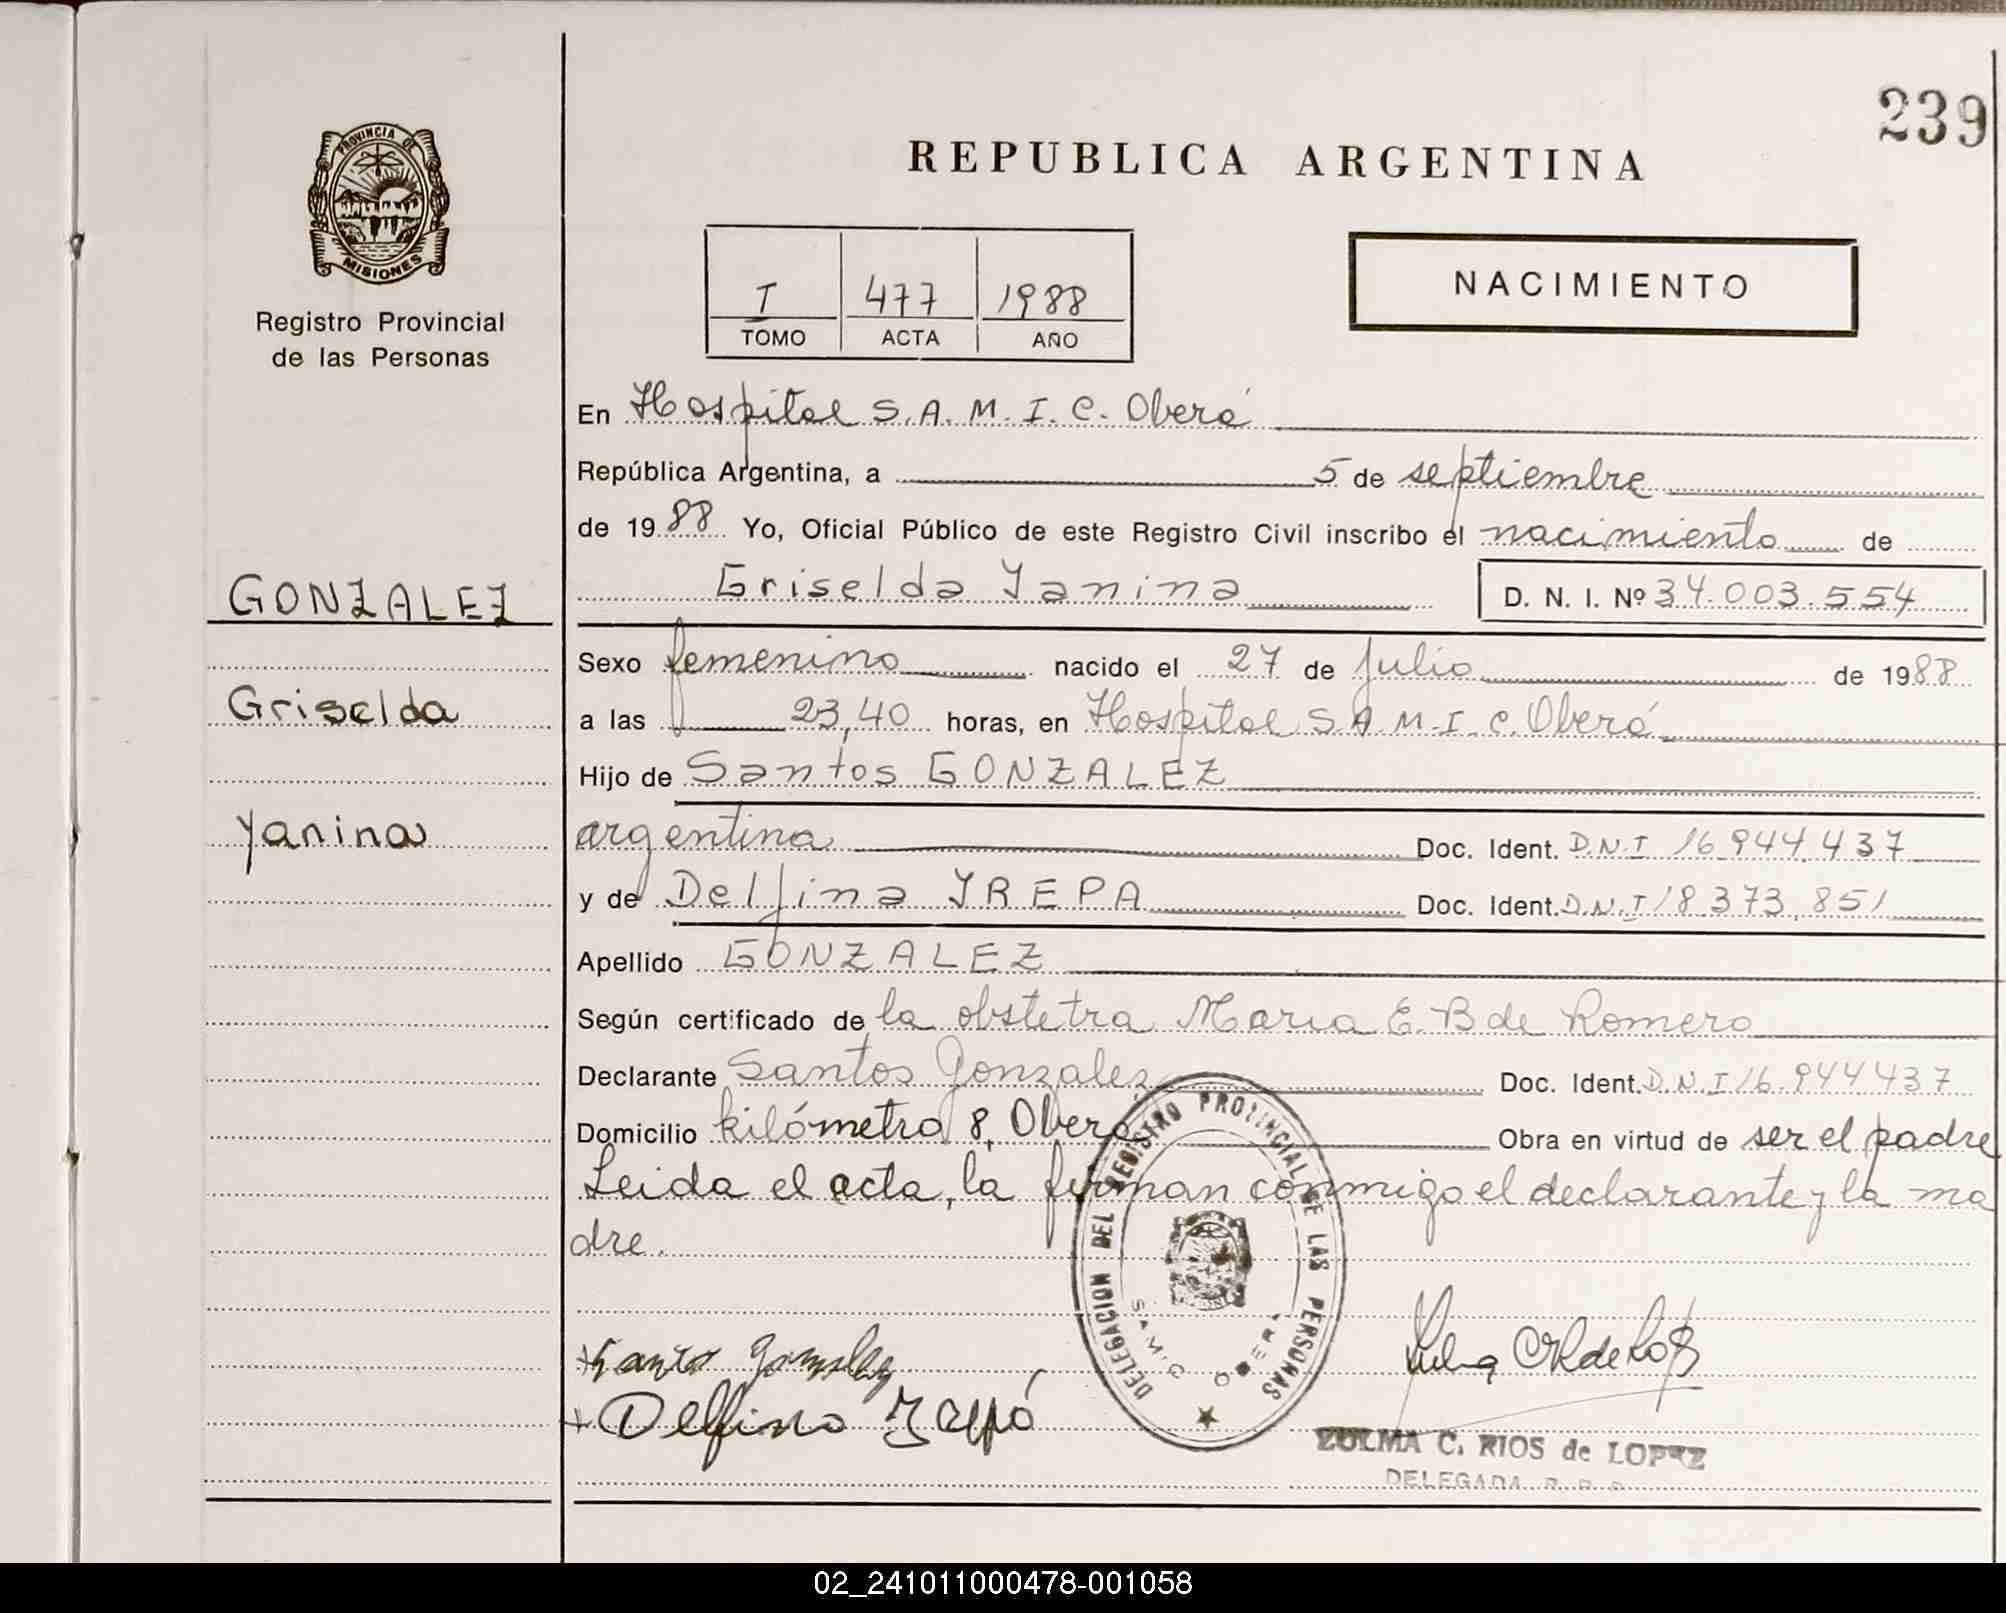 239
PROVINCIA DE
MISIONES
Registro Provincial
de las Personas
REPUBLICA ARGENTINA
NACIMIENTO
I 477 1988
TOMO ACTA AÑO
En Hospital S.A.M.I.C. Oberá
República Argentina, a 5 de septiembre
de 1988 Yo, Oficial Público de este Registro Civil inscribo el nacimiento de
Griselda Yanina D. N. I. Nº 34.003.554
GONZALEZ
Griselda
Yanina
Sexo femenino nacido el 27 de julio de 1988
a las 23,40 horas, en Hospital S.A.M.I.C. Oberá
Hijo de Santos GONZALEZ
argentina Doc. Ident. D.N.I 16.944.437
y de Delfina YREPA Doc. Ident. D.N.I 18.373.851
Apellido GONZALEZ
Según certificado de la obstetra Maria E. B de Romero
Declarante Santos Gonzalez Doc. Ident. D.N.I 16.944437
Domicilio kilómetro 8, Oberá Obra en virtud de ser el padre
Leida el acta, la firman conmigo el declarante y la ma
dre.
DELEGACION DEL REGISTRO PROVINCIAL DE LAS PERSONAS
S.A.M.I.C OBERA
Santo Gonzalez
Delfina
ZULMA C. RIOS de LOPEZ
DELEGADA R. P. P.
02_241011000478-001058